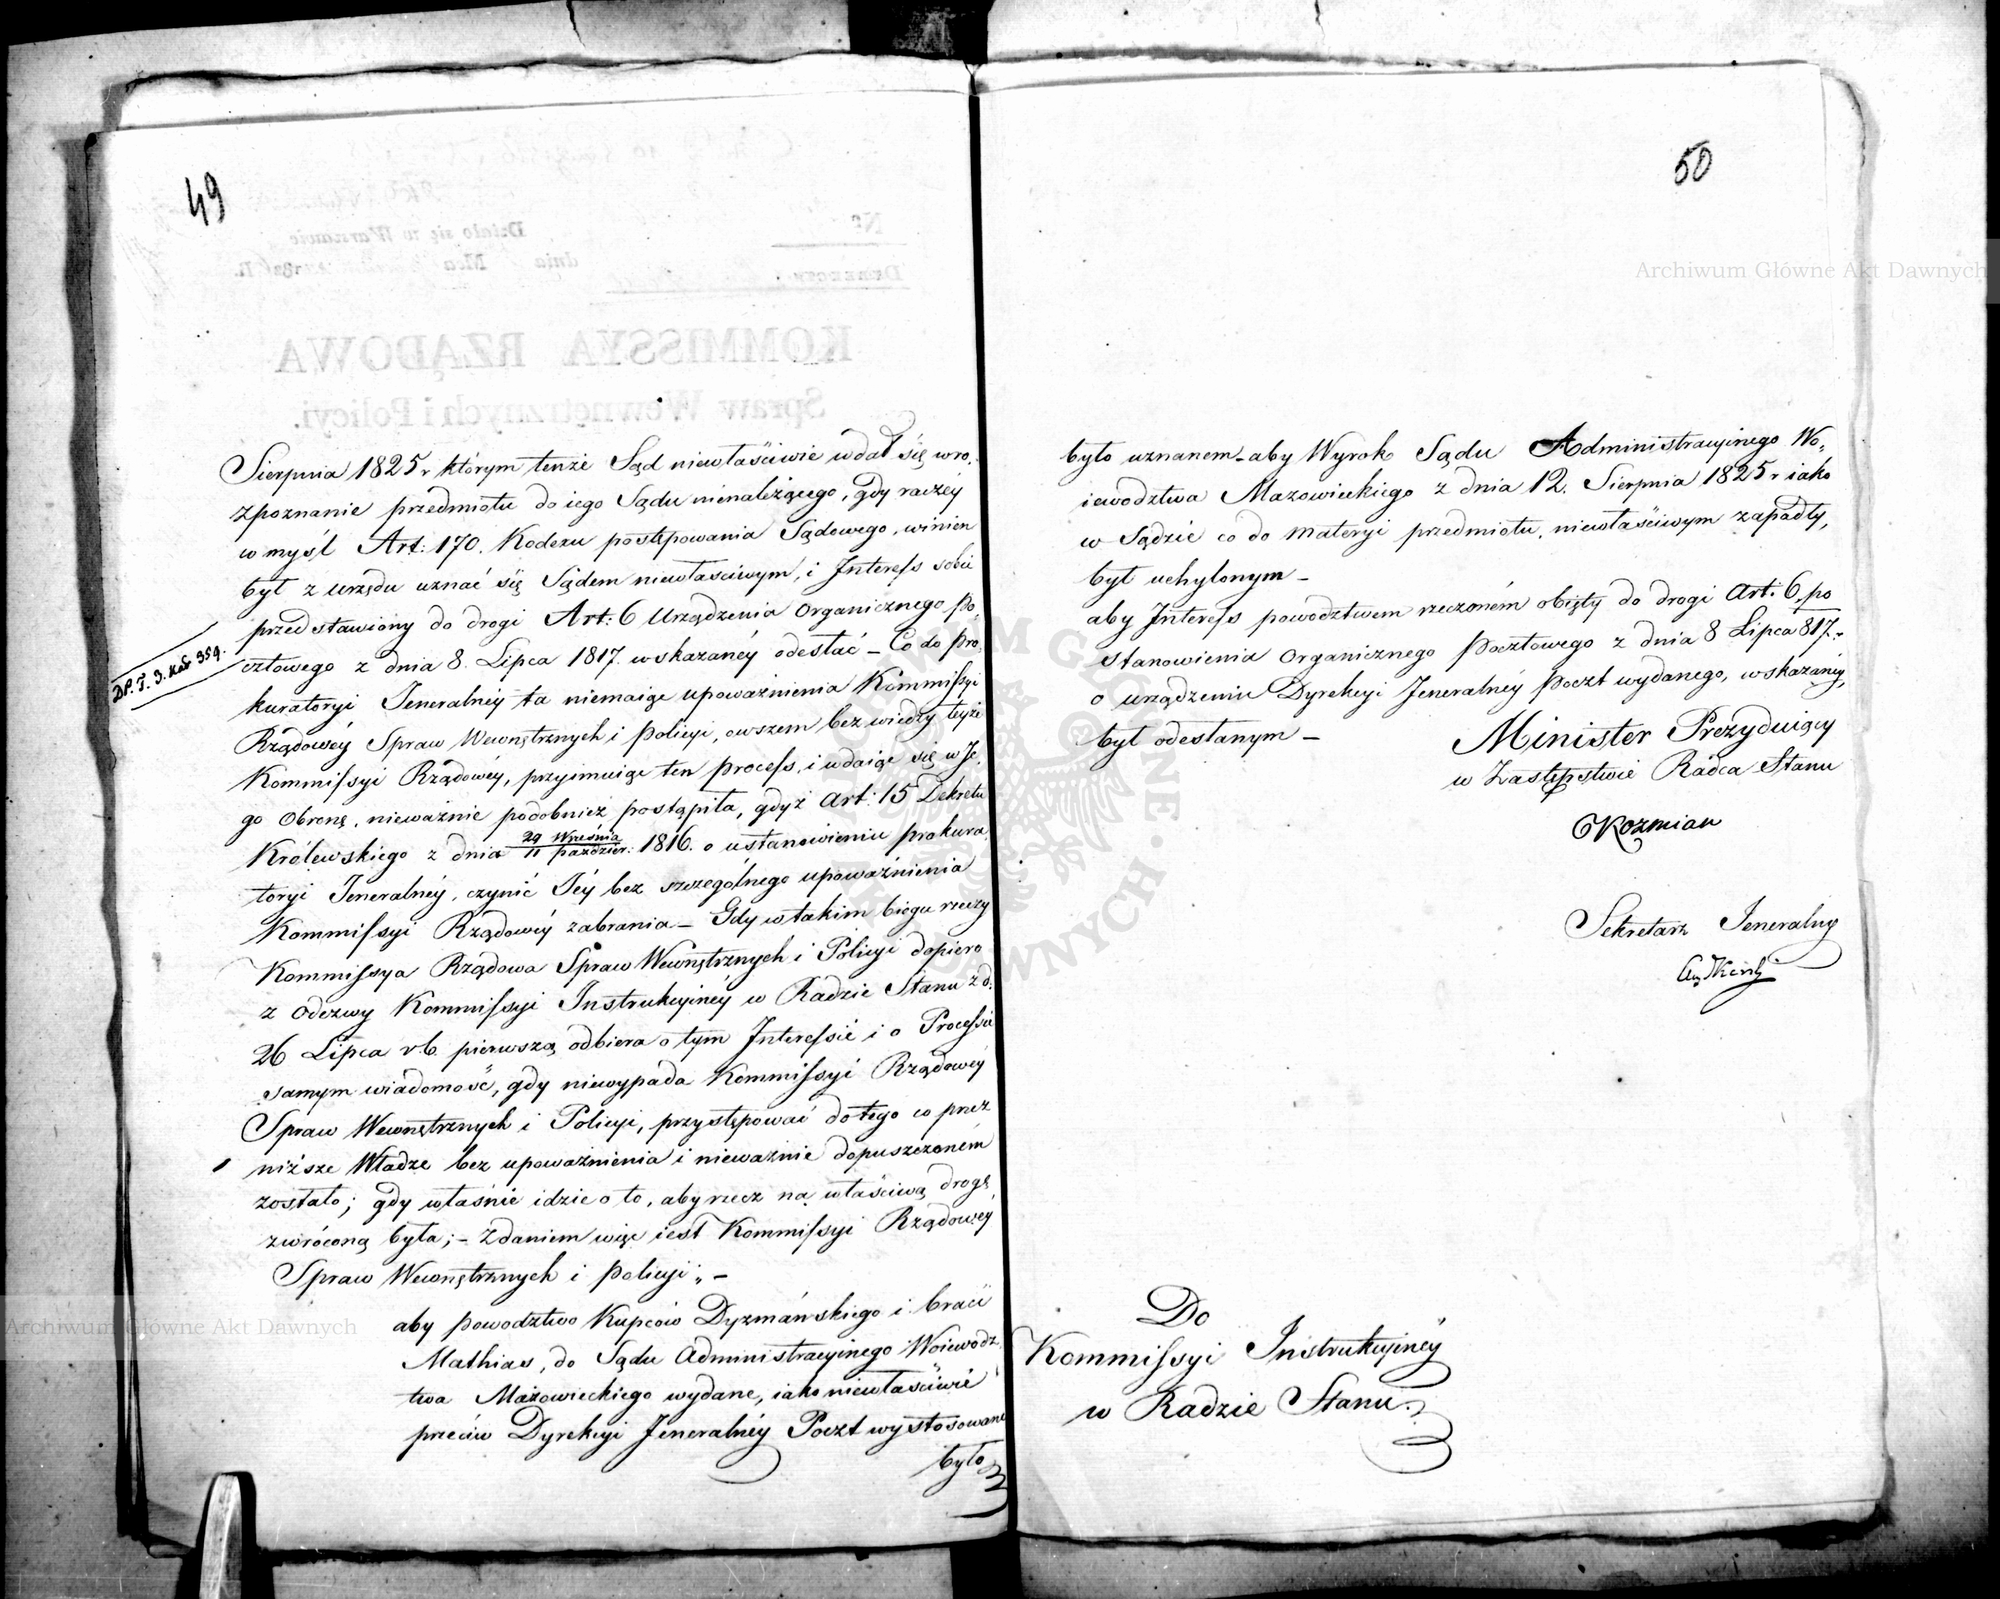 49
Sierpnia 1825 r którym tenże Sąd niewłaściwie wdał się w ro,
zpoznanie przedmiotu do iego Sądu nienależącego, gdy raczéy
w myśl Art: 170. Kodexu postępowania Sądowego, winien
był z urzędu uznać się Sądem niewłaściwym, i Interess sobie
przedstawiony do drogi Art: 6 Urządzenia Organicznego Po,
cztowego z dnia 8. Lipca 1817. wskazanéy odesłać – Co do Pro,
DP. T. 3. Kar 359.
kuratoryi Jeneralnéy ta niemaiąc upoważnienia Kommissyi
Rządowéy Spraw Wewnętrznych i Policyi, owszem bez wiedzy teyże
Kommissyi Rządowéy, przyimuiąc ten process, i wdaiąc się w Je,
go Obronę, nieważnie podobnież postąpiła, gdyż Art: 15 Dekretu
Królewskiego z dnia 29 Września / 11 Paździer: 1816. o ustanowieniu Prokura,
toryi Jeneralnéy, czynić Jéy bez szczególnego upoważnienia
Kommissyi Rządowéy zabrania – Gdy w takim biegu rzeczy
Kommissya Rządowa Spraw Wewnętrznych i Policyi dopiero
z Odezwy Kommissyi Instrukcyinéy w Radzie Stanu z d.
26 Lipca r. b. pierwszą odbiera o tym Interessie i o Processie
samym wiadomość, gdy niewypada Kommissyi Rządowéy
Spraw Wewnętrznych i Policyi, przystępować do tego co przez
niższe Władze bez upoważnienia i nieważnie dopuszczoném
zostało; gdy właśnie idzie o to, aby rzecz na właściwą drogę
zwróconą była; – Zdaniem więc iest Kommissyi Rządowéy
Spraw Wewnętrznych i Policyi; –
aby powodztwo Kupców Dyzmańskiego i braci
Mathias, do Sądu Administracyinego Woiewodz,
twa Mazowieckiego wydane, iako niewłaściwie
przeciw Dyrekcyi Jeneralnéy Poczt wystosowane
było
50
było uznanem – aby Wyrok Sądu Administracyinego Wo,
iewodztwa Mazowieckiego z dnia 12. Sierpnia 1825 r iako
w Sądzie co do materyi przedmiotu, niewłaściwym zapadły,
był uchylonym –
aby Interess powodztwem rzeczoném obięty do drogi Art: 6. po
stanowienia Organicznego Pocztowego z dnia 8 Lipca 817. r
o urządzeniu Dyrekcyi Jeneralnéy Poczt wydanego, wskazanéy,
był odesłanym –
Minister Prezyduiący
w Zastępstwie Radca Stanu
Kozmian
Sekretarz Jeneralny
Do
Kommissyi Instrukcyinéy
w Radzie Stanu.
Archiwum Główne Akt Dawnych
Archiwum Główne Akt Dawnych